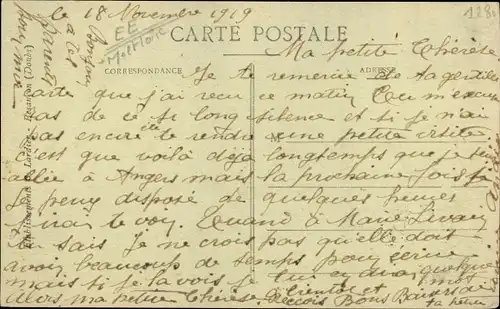 le 18 Novembre 1919
CARTE POSTALE
CORRESPONDANCE
ADRESSE
Ma petite Thérèse
Je te remercie de ta gentille
carte que j'ai reçu ce matin
pas de ce si long silence et si je n'ai
pas encore été te rendre une petite visite
c'est que voilà déjà longtemps que je suis
allée à Angers mais la prochaine fois si
je peux disposé de quelques heures
j'irai te voir. Quand à Marie
tu sais je ne crois pas qu'elle doit
avoir beaucoup de temps pour écrire
mais si je la vois je lui en dirai quelque mot
Alors ma petite Thérèse à bientôt et
reçois Bons Baisers de
ta
Bonjour
à tes
parents
pour moi
EE
Militaire
128